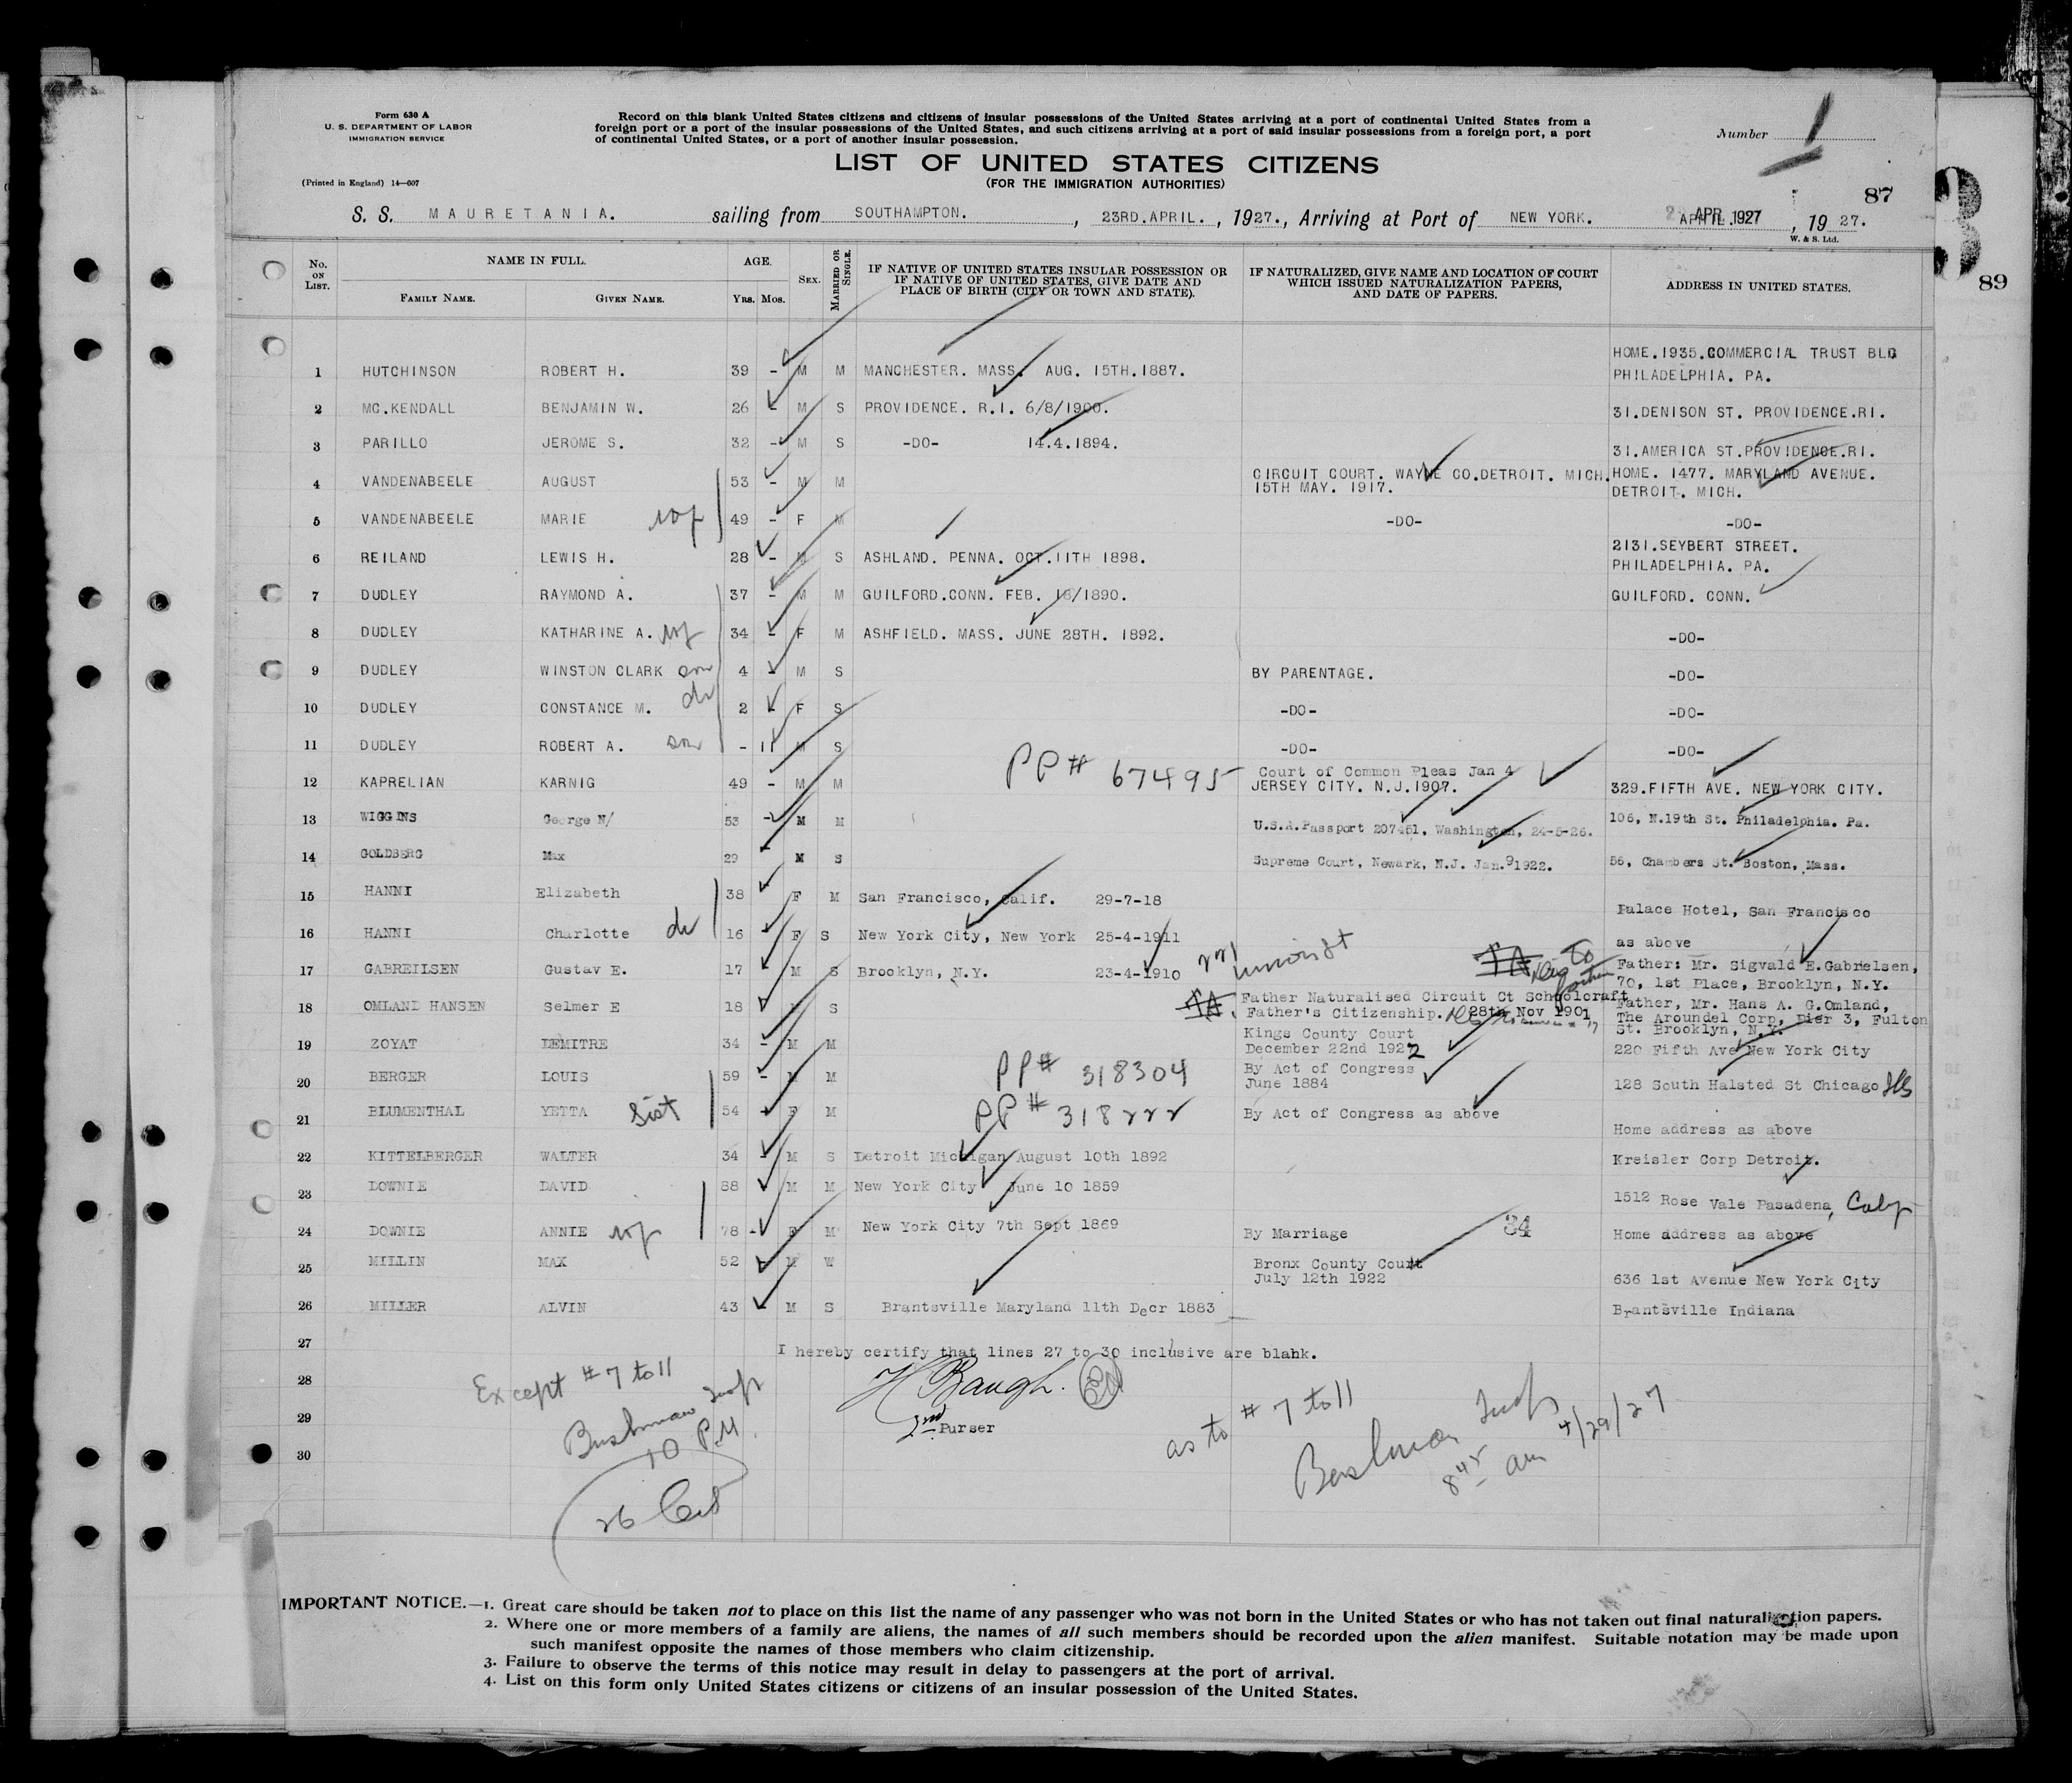 Form 630 A
U. S. DEPARTMENT OF LABOR
IMMIGRATION SERVICE
(Printed in England) 14—607
Record on this blank United States citizens and citizens of insular possessions of the United States arriving at a port of continental United States from a
foreign port or a port of the insular possessions of the United States, and such citizens arriving at a port of said insular possessions from a foreign port, a port
of continental United States, or a port of another insular possession.
Number 1
LIST OF UNITED STATES CITIZENS
(FOR THE IMMIGRATION AUTHORITIES)
87
89
S. S. MAURETANIA. sailing from SOUTHAMPTON. , 23RD.APRIL. , 1927., Arriving at Port of NEW YORK. APR 1927 , 19 27.
W. & S. Ltd.
No. ON LIST. NAME IN FULL. AGE. SEX. MARRIED OR SINGLE. IF NATIVE OF UNITED STATES INSULAR POSSESSION OR IF NATIVE OF UNITED STATES, GIVE DATE AND PLACE OF BIRTH (CITY OR TOWN AND STATE). IF NATURALIZED, GIVE NAME AND LOCATION OF COURT WHICH ISSUED NATURALIZATION PAPERS, AND DATE OF PAPERS. ADDRESS IN UNITED STATES.
FAMILY NAME. GIVEN NAME. YRS. MOS.
1 HUTCHINSON ROBERT H. 39 - M M MANCHESTER. MASS. AUG. 15TH.1887. HOME.1935.COMMERCIAL TRUST BLD
PHILADELPHIA. PA.
2 MC.KENDALL BENJAMIN W. 26 - M S PROVIDENCE. R.I. 6/8/1900. 31.DENISON ST. PROVIDENCE.RI.
3 PARILLO JEROME S. 32 - M S -DO- 14.4.1894. 31.AMERICA ST.PROVIDENCE.RI.
4 VANDENABEELE AUGUST 53 - M M CIRCUIT COURT. WAYNE CO.DETROIT. MICH. HOME. 1477. MARYLAND AVENUE.
15TH MAY. 1917. DETROIT. MICH.
5 VANDENABEELE MARIE wf 49 - F M -DO- -DO-
6 REILAND LEWIS H. 28 - M S ASHLAND. PENNA. OCT.11TH 1898. 2131.SEYBERT STREET.
PHILADELPHIA. PA.
7 DUDLEY RAYMOND A. 37 - M M GUILFORD.CONN. FEB. 16/1890. GUILFORD. CONN.
8 DUDLEY KATHARINE A. wf 34 - F M ASHFIELD. MASS. JUNE 28TH. 1892. -DO-
9 DUDLEY WINSTON CLARK son 4 - M S BY PARENTAGE. -DO-
10 DUDLEY CONSTANCE M. dr 2 - F S -DO- -DO-
11 DUDLEY ROBERT A. son - 11 M S -DO- -DO-
12 KAPRELIAN KARNIG 49 - M M PP# 67495 Court of Common Pleas Jan 4
JERSEY CITY. N.J.1907. 329.FIFTH AVE. NEW YORK CITY.
13 WIGGINS George N/ 53 - M M U.S.A.Passport 207451, Washington, 24-5-26. 106, N.19th St. Philadelphia. Pa.
14 GOLDBERG Max 29 M S Supreme Court, Newark, N.J. Jan.9 1922. 55, Chambers St. Boston, Mass.
15 HANNI Elizabeth 38 F M San Francisco, Calif. 29-7-18 Palace Hotel, San Francisco
16 HANNI Charlotte dr 16 F S New York City, New York 25-4-1911 as above
17 GABREILSEN Gustav E. 17 M S Brooklyn, N.Y. 23-4-1910 Father: Mr. Sigvald E.Gabrielsen,
70, 1st Place, Brooklyn, N.Y.
18 OMLAND HANSEN Selmer E 18 S Father Naturalised Circuit Ct Schoolcraft
Father's Citizenship. 28th Nov 1901
Father, Mr. Hans A. G.Omland,
The Aroundel Corp, Pier 3, Fulton
St. Brooklyn, N.Y.
19 ZOYAT DEMITRE 34 - M M Kings County Court
December 22nd 1922 220 Fifth Ave New York City
20 BERGER LOUIS 59 - M M PP# 318304 By Act of Congress
June 1884 128 South Halsted St Chicago Ills
21 BLUMENTHAL YETTA Sist 54 - F M PP# 318222 By Act of Congress as above
Home address as above
22 KITTELBERGER WALTER 34 - M S Detroit Michigan August 10th 1892 Kreisler Corp Detroit.
23 DOWNIE DAVID 88 M M New York City June 10 1859 1512 Rose Vale Pasadena, Calif
24 DOWNIE ANNIE wf 78 - F M New York City 7th Sept 1869 By Marriage 34 Home address as above
25 MILLIN MAX 52 - M W Bronx County Court
July 12th 1922 636 1st Avenue New York City
26 MILLER ALVIN 43 - M S Brantsville Maryland 11th Decr 1883 Brantsville Indiana
27
I hereby certify that lines 27 to 30 inclusive are blank.
28
29
30
H Baugh.
2nd Purser
Except # 7 to 11
Bushman Insp
10 P.M.
26 Cit
as to # 7 to 11
Bushman Insp
8 45 am 4/29/27
IMPORTANT NOTICE.—1. Great care should be taken not to place on this list the name of any passenger who was not born in the United States or who has not taken out final naturalization papers.
2. Where one or more members of a family are aliens, the names of all such members should be recorded upon the alien manifest. Suitable notation may be made upon
such manifest opposite the names of those members who claim citizenship.
3. Failure to observe the terms of this notice may result in delay to passengers at the port of arrival.
4. List on this form only United States citizens or citizens of an insular possession of the United States.